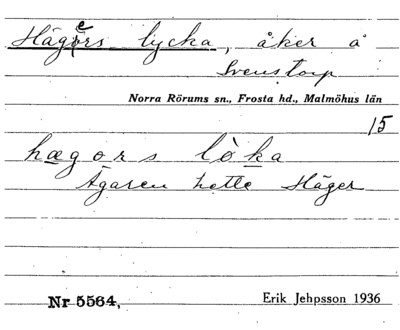 Hägers lycka, åker å
Svenstorp
Norra Rörums sn., Frosta hd., Malmöhus län
15
hægors lòka
Ägaren hette Häger
Nr 5564,
Erik Jehpsson 1936